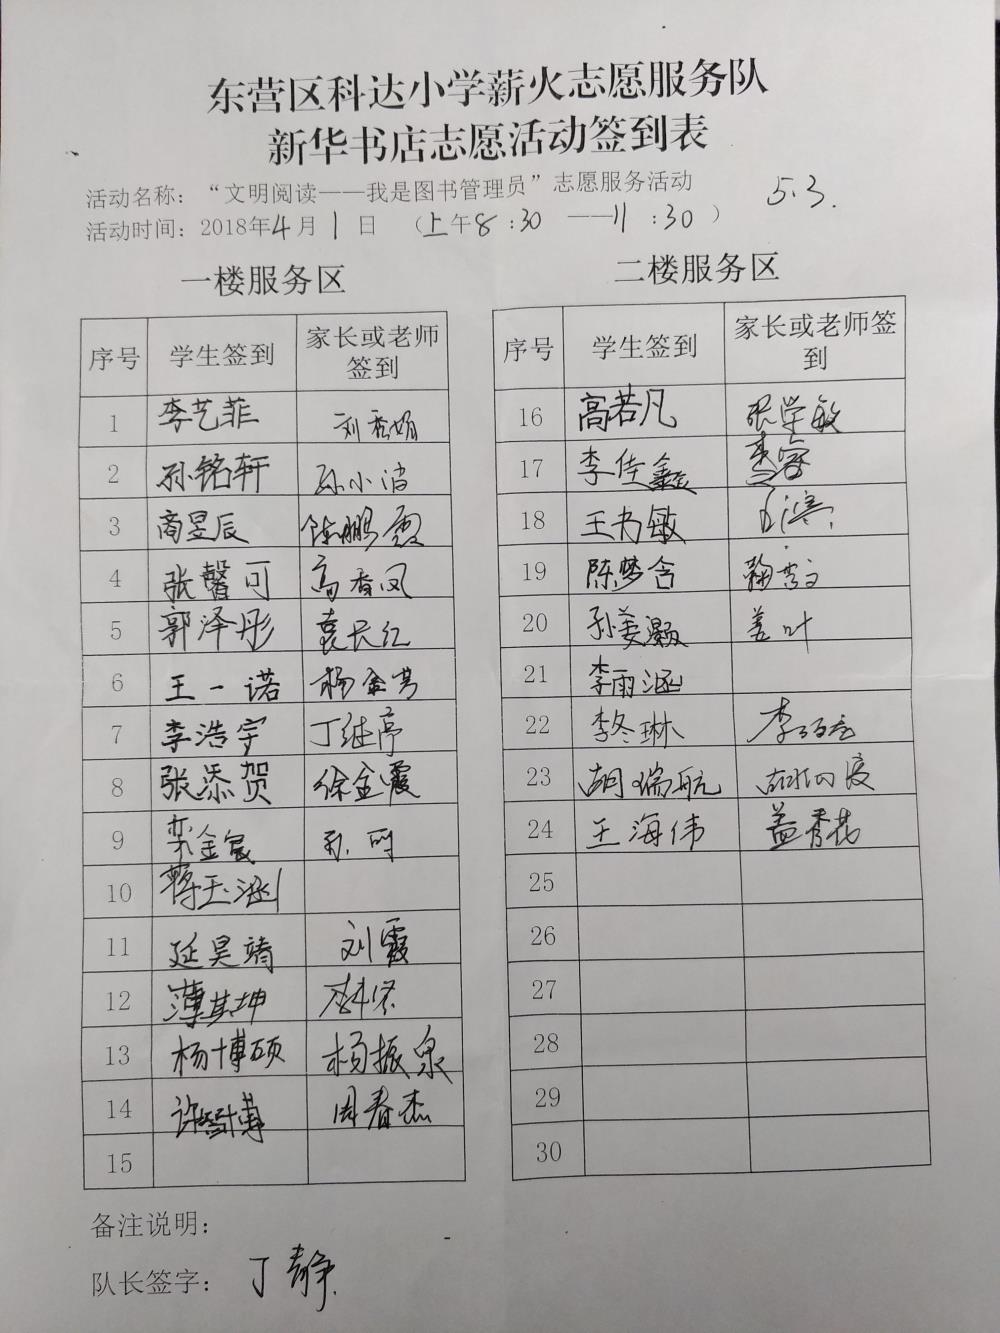 东营区科达小学薪火志愿服务队
新华书店志愿活动签到表
活动名称：“文明阅读——我是图书管理员”志愿服务活动 5.3.
活动时间：2018年4月1日 （上午8:30——11:30）
一楼服务区
序号 学生签到 家长或老师签到
1 李艺菲 刘秀娟
2 孙铭轩 孙小波
3 商昱辰 陈鹏霞
4 张馨可 高春凤
5 郭泽彤 袁长红
6 王一诺 杨金芳
7 李浩宇 丁继亭
8 张添贺 徐金霞
9 栾金宸
10 蒋玉涵
11 延昊靖 刘霞
12 薄其坤
13 杨博硕 杨振泉
14 许智博 周春杰
15
二楼服务区
序号 学生签到 家长或老师签到
16 高若凡 张学敏
17 李佳鑫
18 王书敏
19 陈梦含
20 孙姜灏 姜叶
21 李雨涵
22 李冬琳
23 胡瑞航
24 王海伟 盖秀花
25
26
27
28
29
30
备注说明：
队长签字：丁静